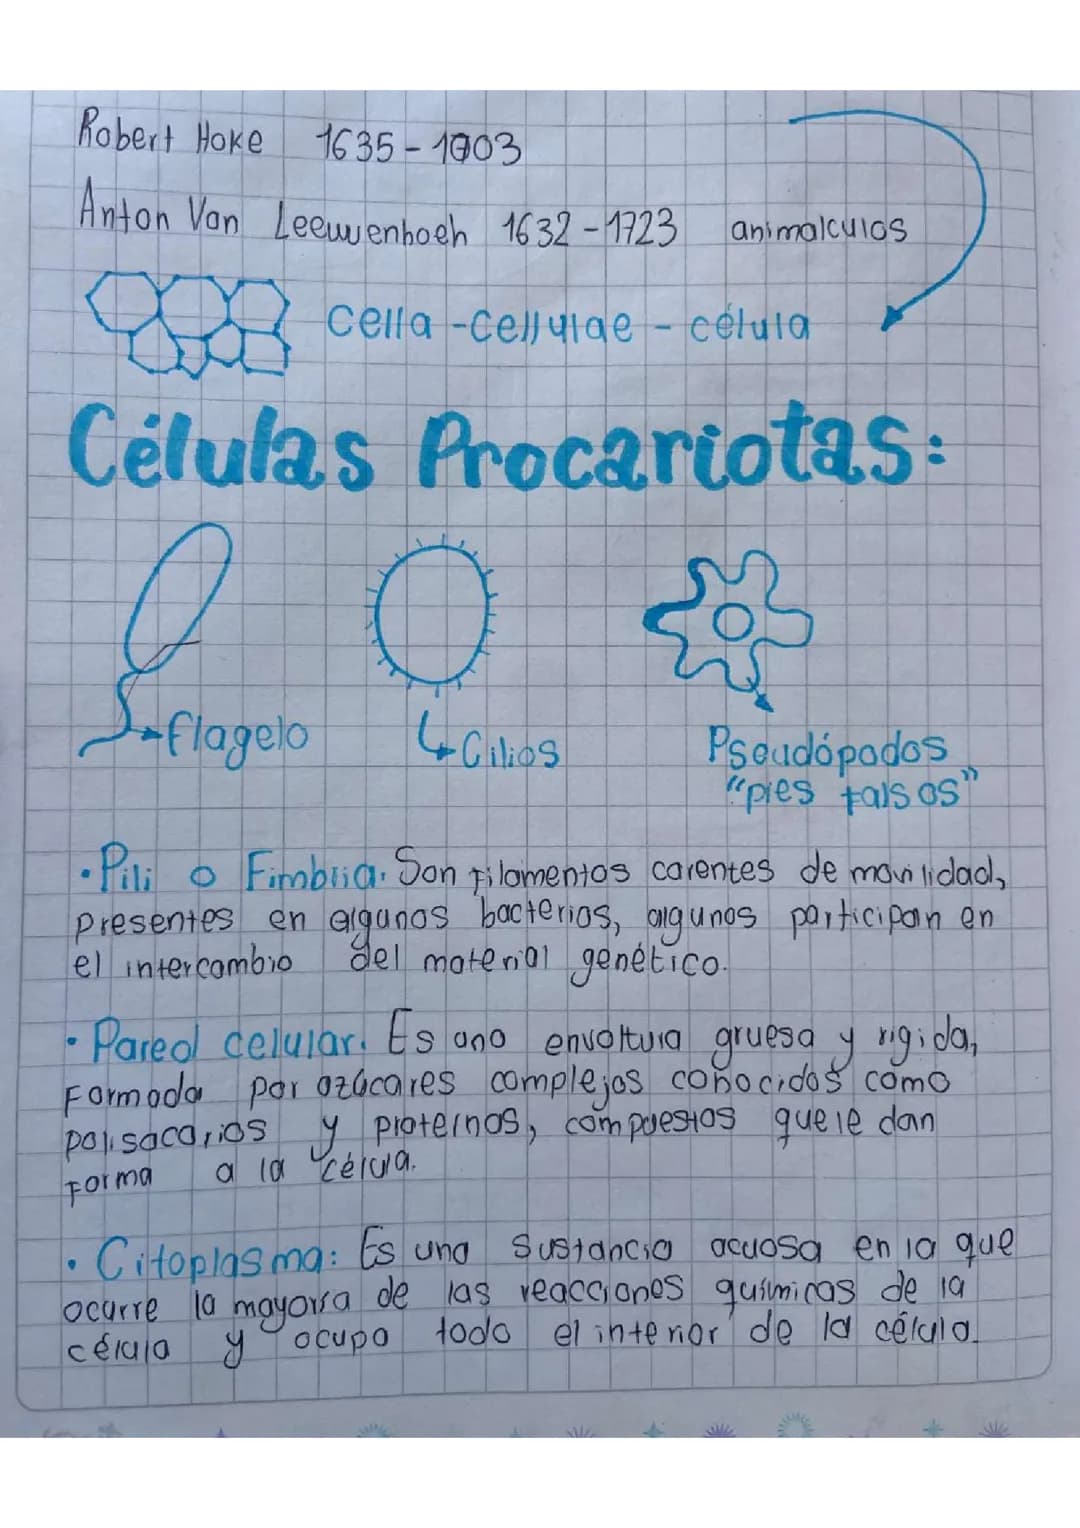 Robert Hoke 1635-1703
Anton Van Leeuwenhoeh 1632-1723 animalculos
Cella - Cellulae - célula
Células Procariotas:
flagelo
Cilios
Pseudópodos
"pies falsos"
• Pili o Fimbria. Son filamentos carentes de movilidad,
presentes en algunas bacterias, algunos participan en
el intercambio del material genético.
• Pared celular. Es una envoltura gruesa y rigida,
Formada por azúcares complejos conocidos como
polisacarios y proteínas, compuestos que le dan
forma a la célula.
• Citoplasma: Es una sustancia acuosa en la que
ocurre la mayoría de las reacciones químicas de la
célula y ocupa todo el interior de la célula.